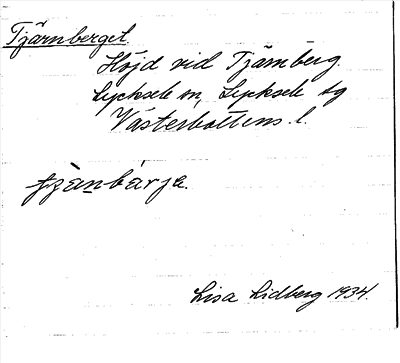 Tjärnberget
Höjd vid Tjärnberg.
Lycksele sn, Lycksele tg
Västerbottens l.
Lisa Lidberg 1934.